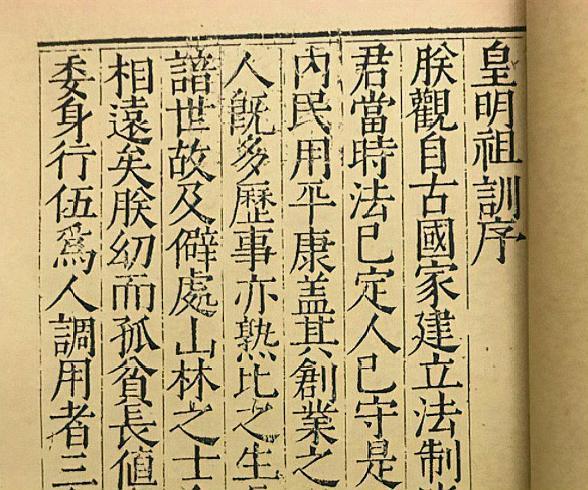 皇明祖訓序
朕觀自古國家建立法制
君當時法已定人已守是
內民用平康盖其創業之
人既多歷事亦熟比之生
諳世故及僻處山林之士
相遠矣朕幼而孤貧長值
委身行伍爲人調用者三